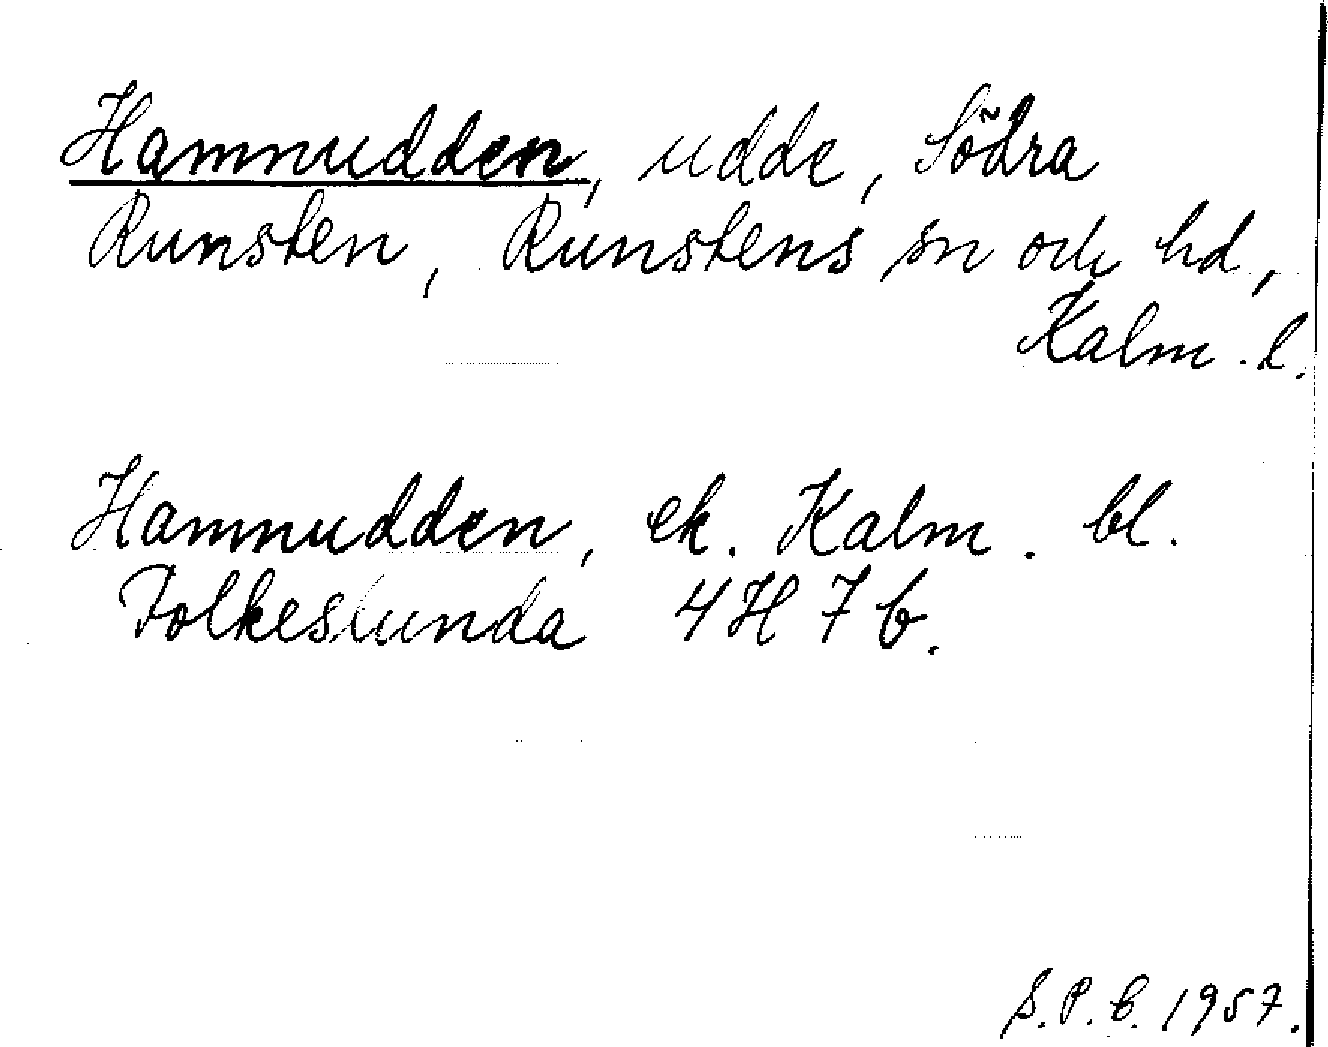 Hamnudden, udde, Södra
Runsten, Runstens sn och hd,
Kalm. l.
Hamnudden, ek. Kalm. bl.
Folkeslunda 4H 7b.
S.P.B. 1957.